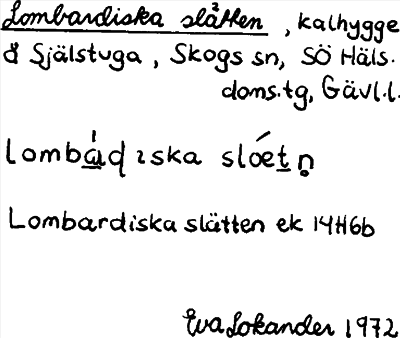 Lombardiska slåtten, kalhygge
å Själstuga, Skogs sn, SÖ Häls.
doms.tg, Gävl.l.
lombáɖıska slóetn̥
Lombardiska slätten ek 14H6b
Eva Lokander 1972